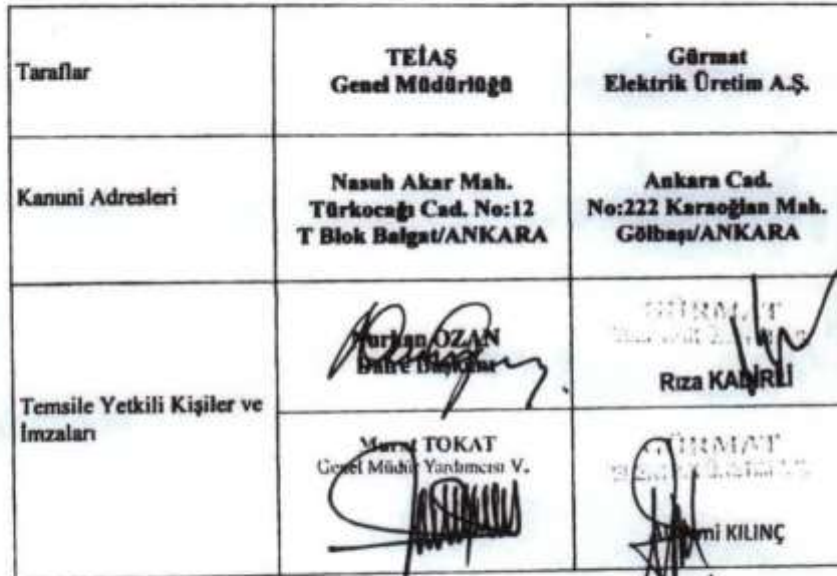 Taraflar
TEİAŞ
Genel Müdürlüğü
Gürmat
Elektrik Üretim A.Ş.
Kanuni Adresleri
Nasuh Akar Mah.
Türkocağı Cad. No:12
T Blok Balgat/ANKARA
Ankara Cad.
No:222 Karaoğlan Mah.
Gölbaşı/ANKARA
Temsile Yetkili Kişiler ve
İmzaları
OZAN
Daire Başkanı
GÜRMAT
Rıza KADİRLİ
Murat TOKAT
Genel Müdür Yardımcısı V.
GÜRMAT
KILINÇ